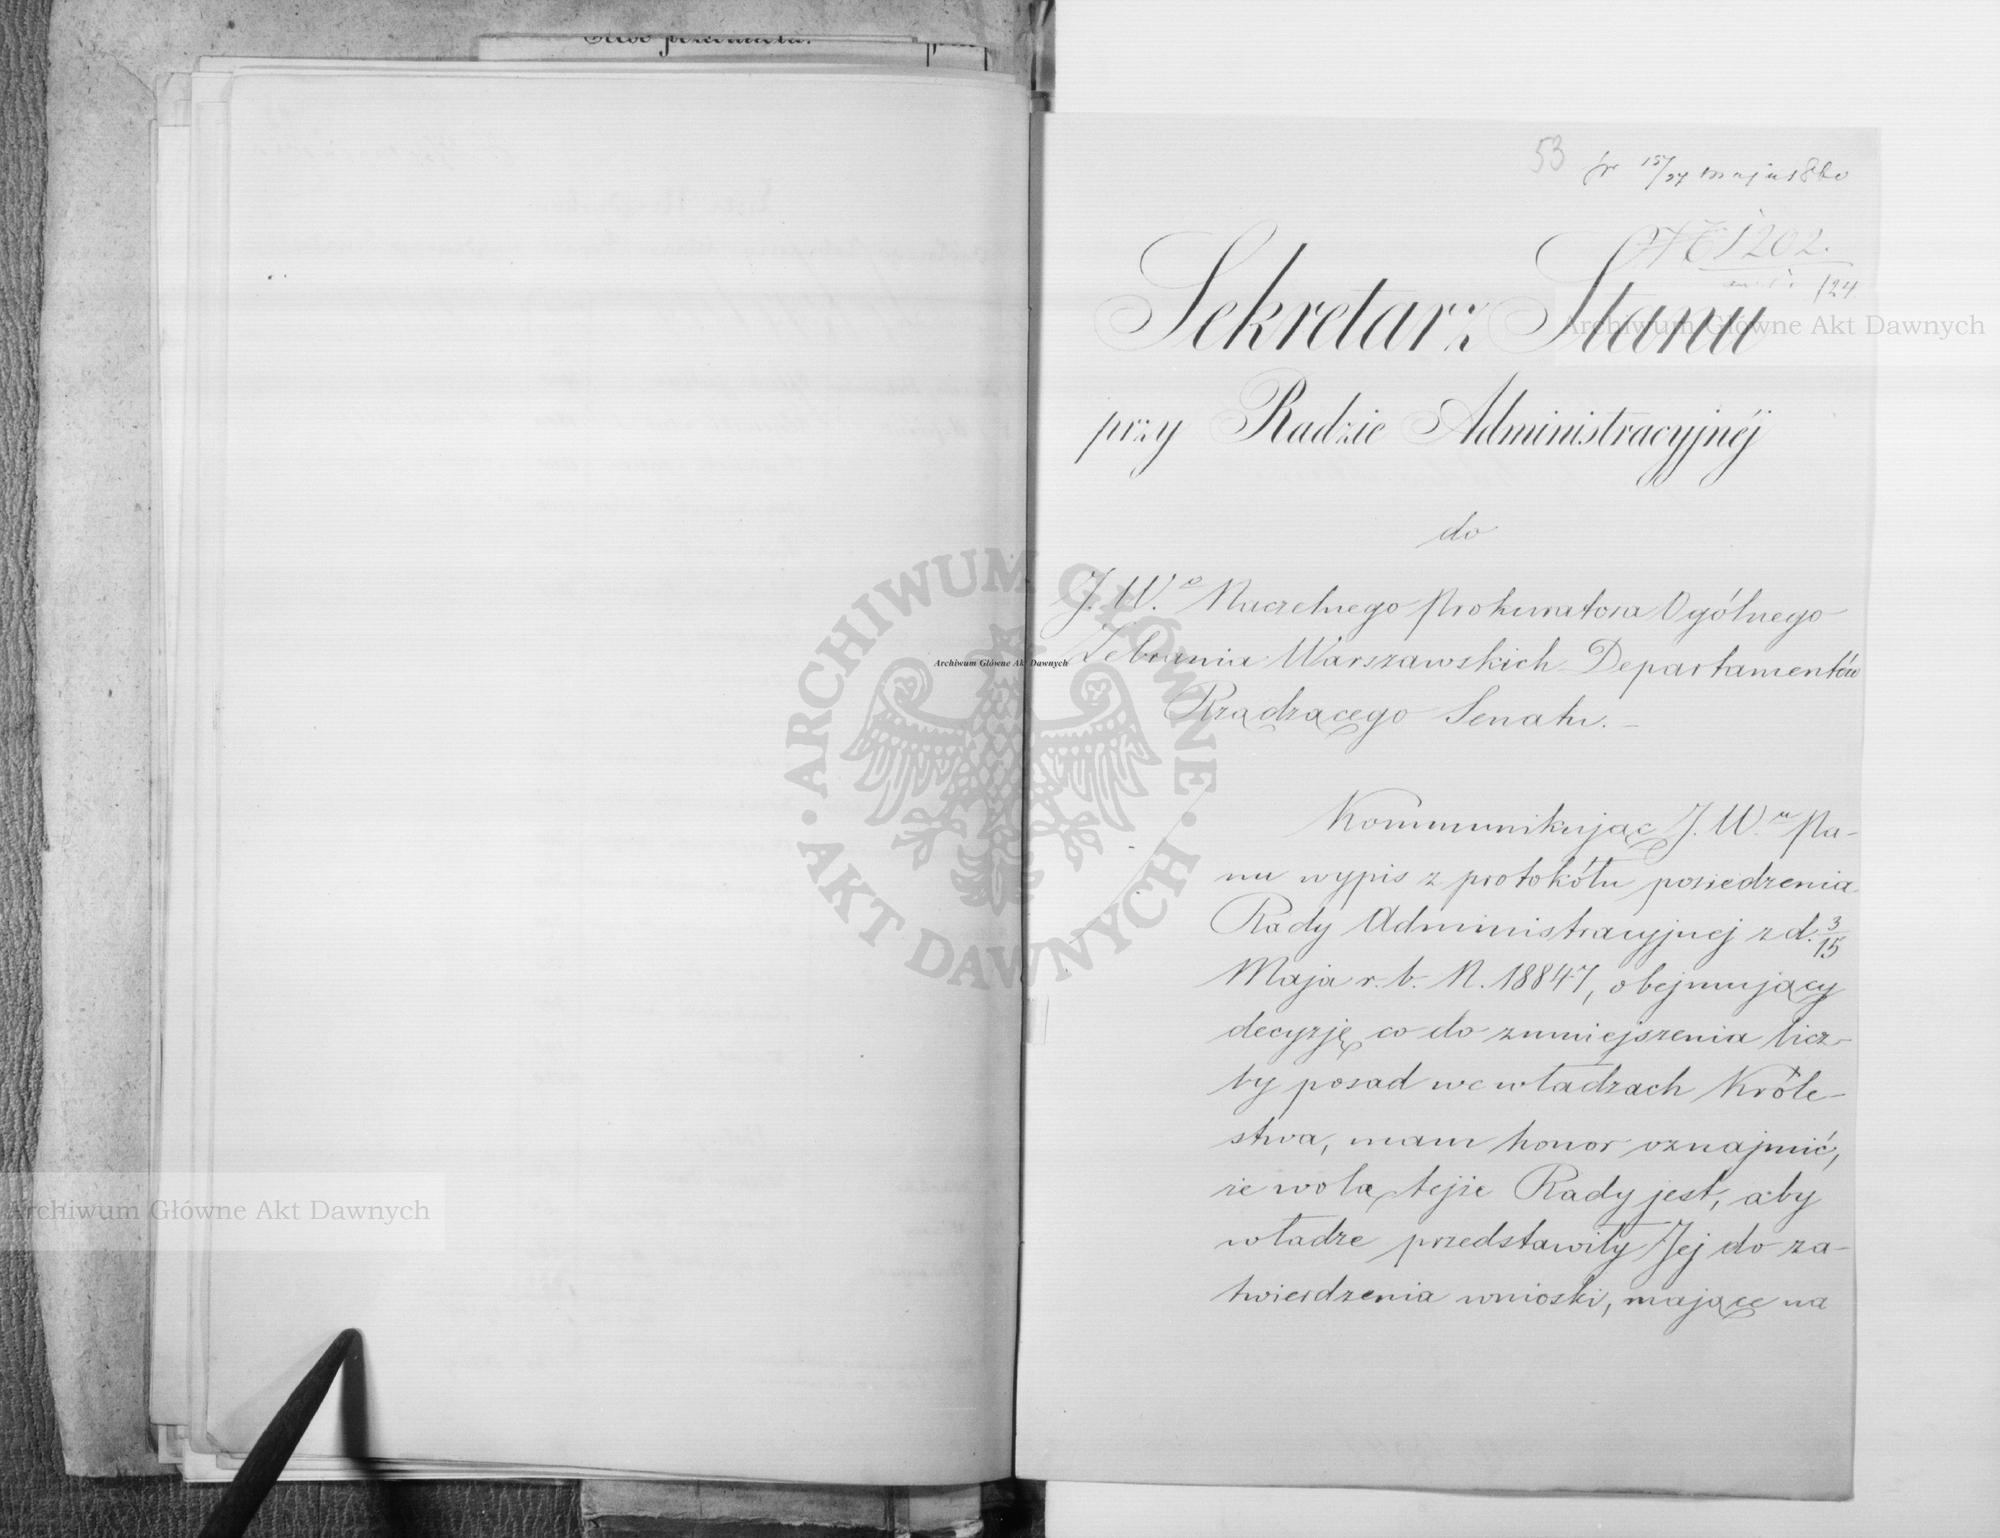 53
pr 15/27 maja 1860
N 1202.
124
Sekretarz Stanu
przy Radzie Administracyjnéj
do
J. W.o Naczelnego Prokuratora Ogólnego
Zebrania Warszawskich Departamentów
Rządzącego Senatu.
Kommunikując J. W.u Pa-
nu wypis z protokółu posiedzenia
Rady Administracyjnej z d. 3/15
Maja r. b. N. 18847, obejmujący
decyzję co do zmniejszenia licz-
by posad we władzach Króle-
stwa, mam honor oznajmić,
że wolą tejże Rady jest, aby
władze przedstawiły Jej do za-
twierdzenia wnioski, mające na
Archiwum Główne Akt Dawnych
Archiwum Główne Akt Dawnych
ARCHIWUM GŁÓWNE • AKT DAWNYCH •
Archiwum Główne Akt Dawnych